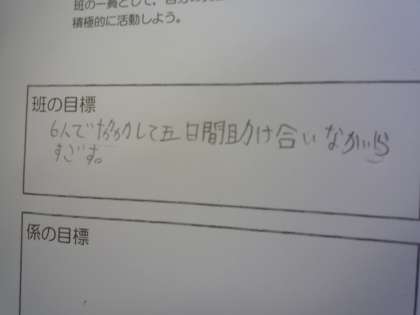 班の一員として、自分の
積極的に活動しよう。
班の目標
6人で協力して五日間助け合いながら
すごす。
係の目標